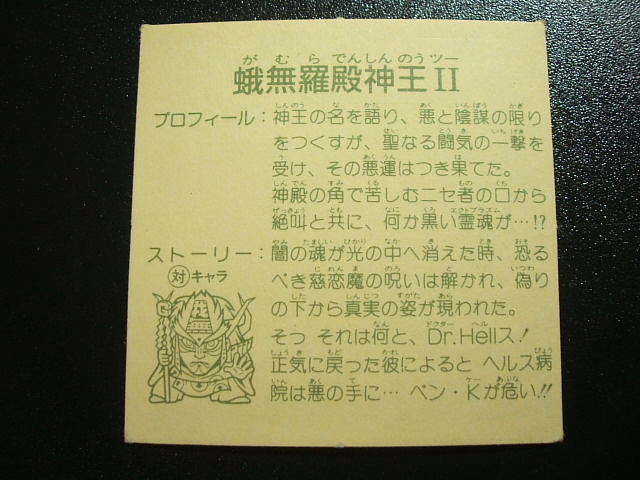 蛾無羅殿神王II
プロフィール：神王の名を語り、悪と陰謀の限り
をつくすが、聖なる闘気の一撃を
受け、その悪運はつき果てた。
神殿の角で苦しむニセ者の口から
絶叫と共に、何か黒い霊魂が…!?
ストーリー：闇の魂が光の中へ消えた時、恐る
べき慈恋魔の呪いは解かれ、偽り
の下から真実の姿が現われた。
そっ それは何と、Dr.Hellス！
正気に戻った彼によると ヘルス病
院は悪の手に… ベン・Kが危い!!
対 キャラ